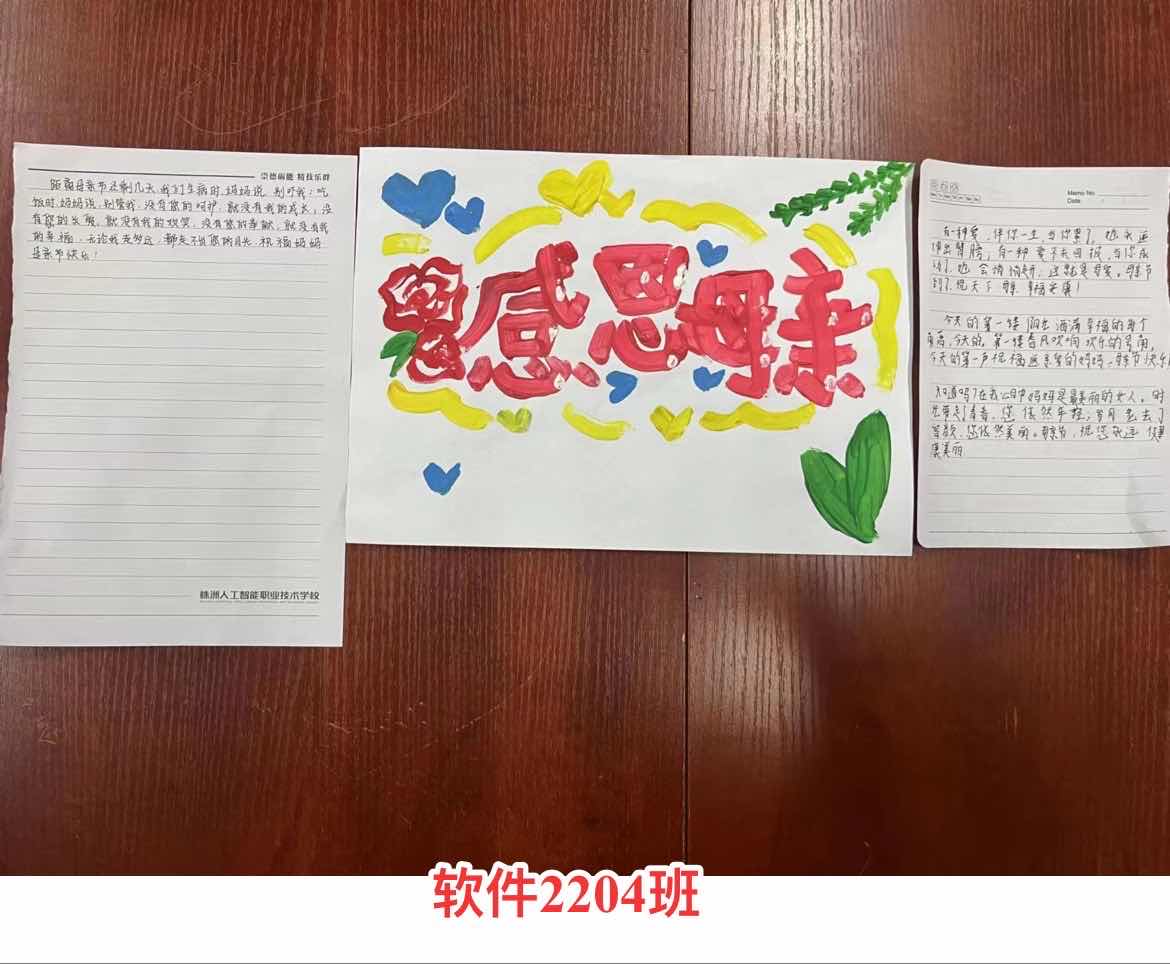 崇德尚能 精技乐群
距离母亲节还剩几天,我们生病时,妈妈说,别吓我;吃
饭时,妈妈说,别管我,没有您的呵护,就没有我的成长,没
有您的长发,就没有我的欢笑,没有您的奉献,就没有我
的幸福,无论我走多远,都走不出您的目光,祝福妈妈
母亲节快乐!
株洲人工智能职业技术学校
感恩母亲
Memo No.
Date.
有一种爱,伴你一生,当你累了,她永远
伸出臂膀,有一种爱不求回报,当你成
功了,她会悄悄,这就是母爱,母亲节
到了,祝天下母亲,幸福安康!
今天的第一缕阳光洒满幸福的每个
角落,今天的第一缕春风吹响欢乐的号角,
今天的第一声祝福送亲爱的妈妈,母亲节快乐
知道吗?在我心中妈妈是最美丽的女人,时
光带走青春,您依然年轻,岁月老去了
容颜,您依然美丽。母亲节,祝您永远健
康美丽
软件2204班